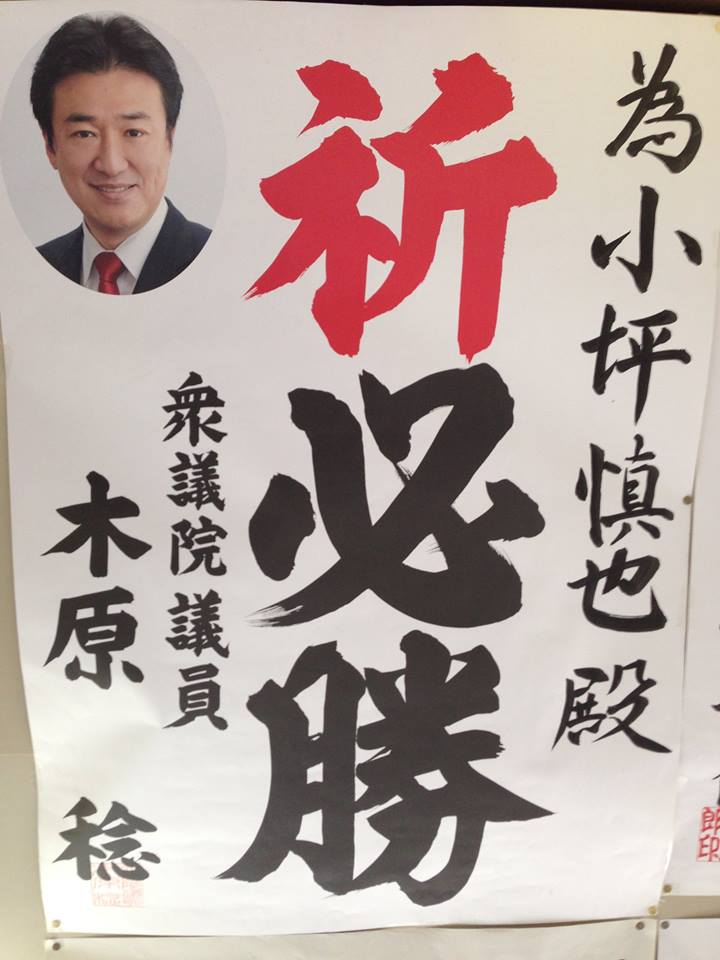 為小坪慎也殿
祈必勝
衆議院議員
木原 稔
郎印